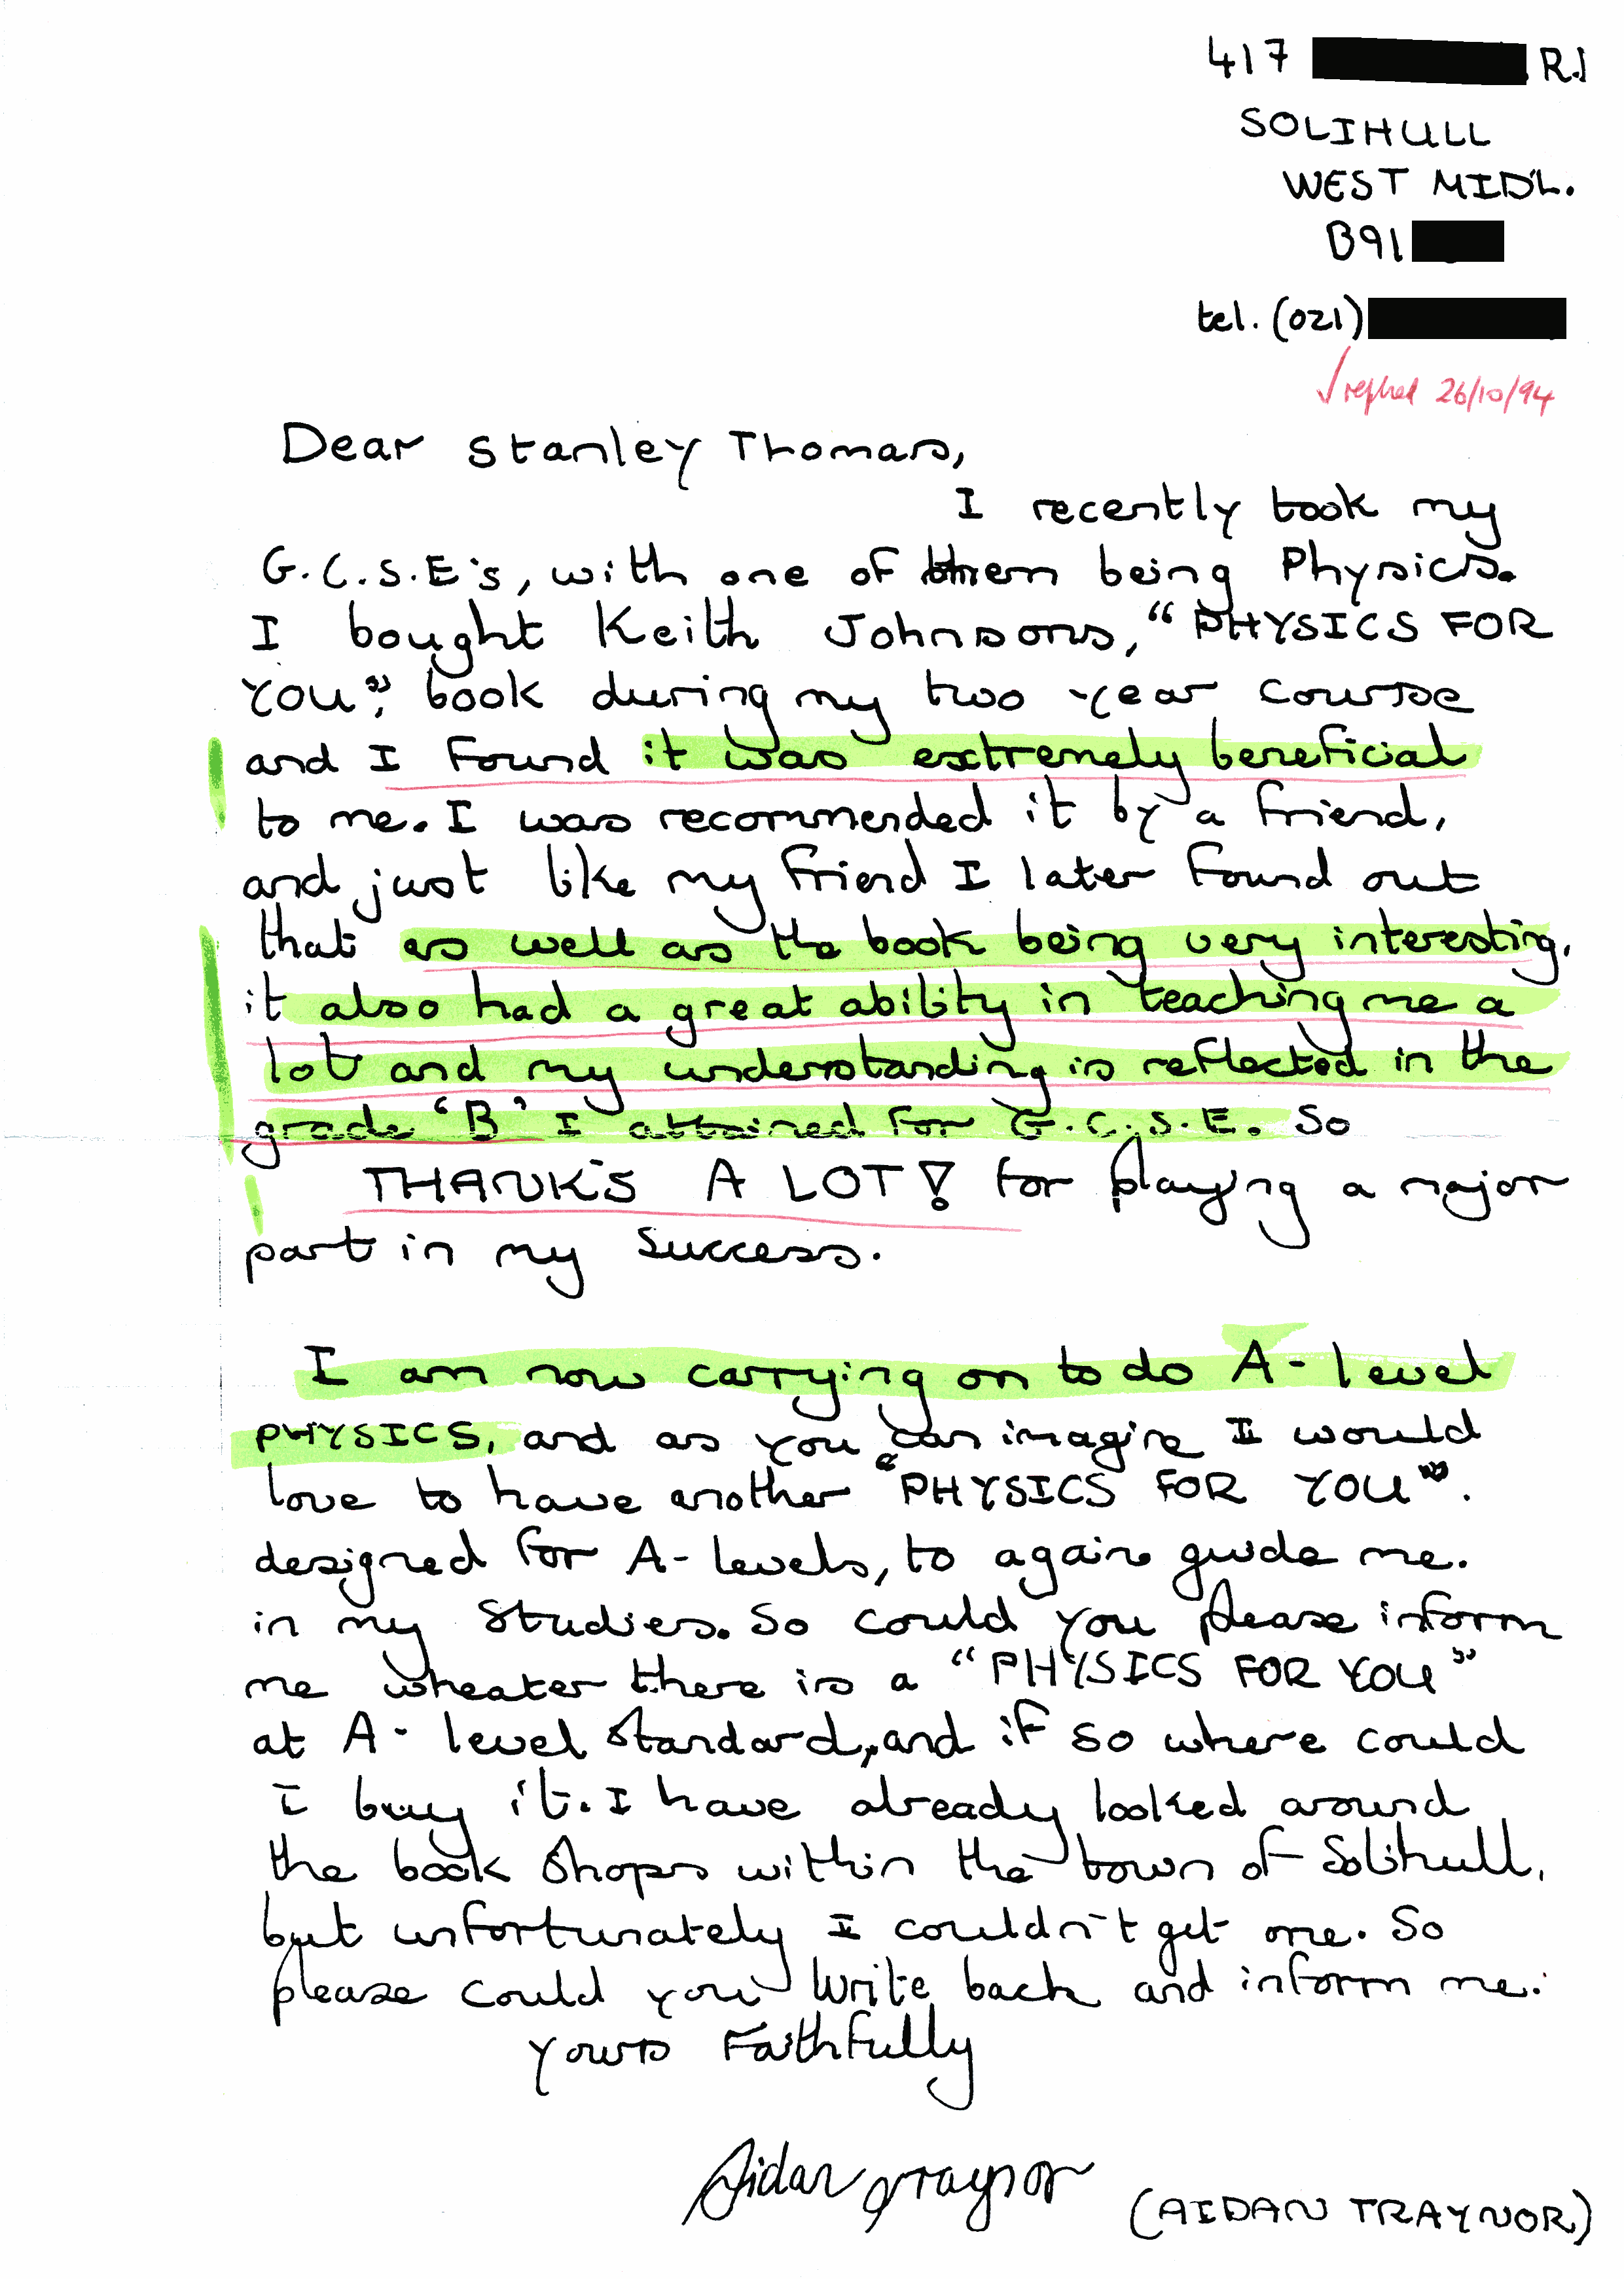 417 R.d
SOLIHULL
WEST MIDL.
B91
tel. (021)
√ replied 26/10/94
Dear Stanley Thomas,
I recently took my
G.C.S.E's, with one of them being Physics.
I bought Keith Johnsons, “PHYSICS FOR
YOU”, book during my two year course
and I found it was extremely beneficial
to me. I was recommended it by a friend,
and just like my friend I later found out
that as well as the book being very interesting,
it also had a great ability in teaching me a
lot and my understanding is reflected in the
grade ‘B’ I attained for G.C.S.E. So
THANK'S A LOT! for playing a major
part in my success.
I am now carrying on to do A-level
PHYSICS, and as you can imagine I would
love to have another “PHYSICS FOR YOU”.
designed for A-levels, to again guide me.
in my studies. So could you please inform
me wheater there is a “PHYSICS FOR YOU”
at A-level standard, and if so where could
I buy it. I have already looked around
the book shops within the town of Solihull,
but unfortunately I couldn't get one. So
please could you write back and inform me.
Yours Faithfully
Aidan Traynor
(AIDAN TRAYNOR)